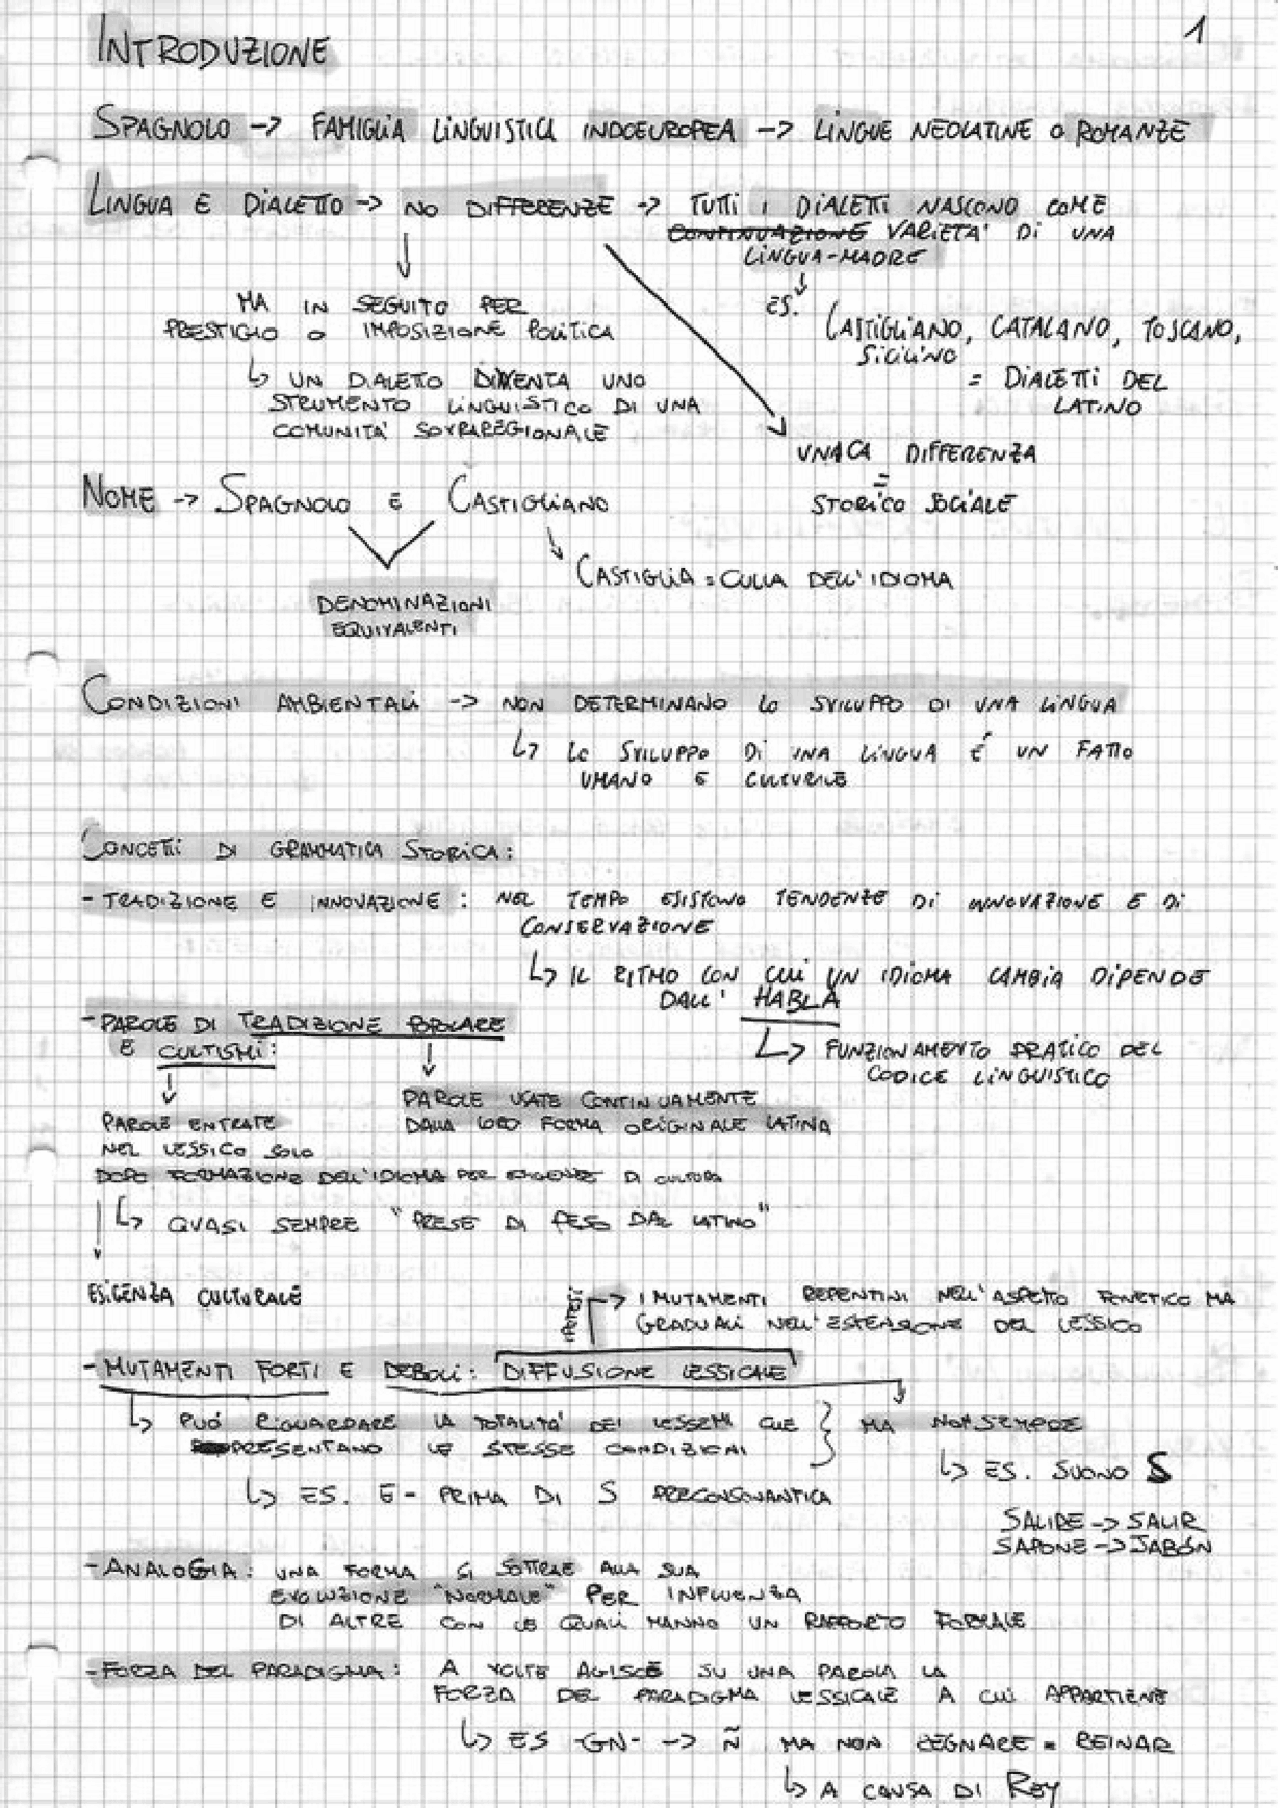 1
INTRODUZIONE
SPAGNOLO -> FAMIGLIA LINGUISTICA INDOEUROPEA -> LINGUE NEOLATINE O ROMANZE
LINGUA E DIALETTO -> NO DIFFERENZE -> TUTTI I DIALETTI NASCONO COME
CONTINUAZIONE VARIETA' DI UNA
LINGUA-MADRE
MA IN SEGUITO PER
PRESTIGIO O IMPOSIZIONE POLITICA
↳ UN DIALETO DIVENTA UNO
STRUMENTO LINGUISTICO DI UNA
COMUNITA' SOVRAREGIONALE
ES.
CASTIGLIANO, CATALANO, TOSCANO,
SICILINO
= DIALETTI DEL
LATINO
UNACA DIFFERENZA
=
STORICO SOCIALE
NOME -> SPAGNOLO E CASTIGLIANO
CASTIGLIA = CULLA DELL'IDIOMA
DENOMINAZIONI
EQUIVALENTI
CONDIZIONI AMBIENTALI -> NON DETERMINANO LO SVILUPPO DI UNA LINGUA
↳ LO SVILUPPO DI UNA LINGUA É UN FATTO
UMANO E CULTURALE
CONCETTI DI GRAMMATICA STORICA:
- TRADIZIONE E INNOVAZIONE: NEL TEMPO ESISTONO TENDENZE DI INNOVAZIONE E DI
CONSERVAZIONE
↳ IL RITMO CON CUI UN IDIOMA CAMBIA DIPENDE
DALL' HABLA
↳ FUNZIONAMENTO PRATICO DEL
CODICE LINGUISTICO
- PAROLE DI TRADIZIONE POPOLARE
E CULTISMI:
PAROLE USATE CONTINUAMENTE
DALLA LORO FORMA ORIGINALE LATINA
PAROLE ENTRATE
NEL LESSICO SOLO
DOPO FORMAZIONE DELL'IDIOMA PER ESIGENZE DI CULTURA
↳ QUASI SEMPRE "PRESE DI PESO DAL LATINO"
ESIGENZA CULTURALE
IPOTESI
-> I MUTAMENTI REPENTINI NELL'ASPETTO FONETICO MA
GRADUALI NELL'ESTENSIONE DEL LESSICO
- MUTAMENTI FORTI E DEBOLI: DIFFUSIONE LESSICALE
↳ PUÓ RIGUARDARE LA TOTALITA' DEI LESSEMI CHE } MA NON SEMPRE
PRESENTANO LE STESSE CONDIZIONI
↳ ES. SUONO S
↳ ES. E- PRIMA DI S PRECONSONANTICA
SALIRE -> SALIR
SAPONE -> JABÓN
- ANALOGIA: UNA FORMA SI SOTTRAE ALLA SUA
EVOLUZIONE "NORMALE" PER INFLUENZA
DI ALTRE CON LE QUALI HANNO UN RAPPORTO FORMALE
- FORZA DEL PARADIGMA: A VOLTE AGISCE SU UNA PAROLA LA
FORZA DEL PARADIGMA LESSICALE A CUI APPARTIENE
↳ ES -GN- -> Ñ MA NON REGNARE = REINAR
↳ A CAUSA DI REY